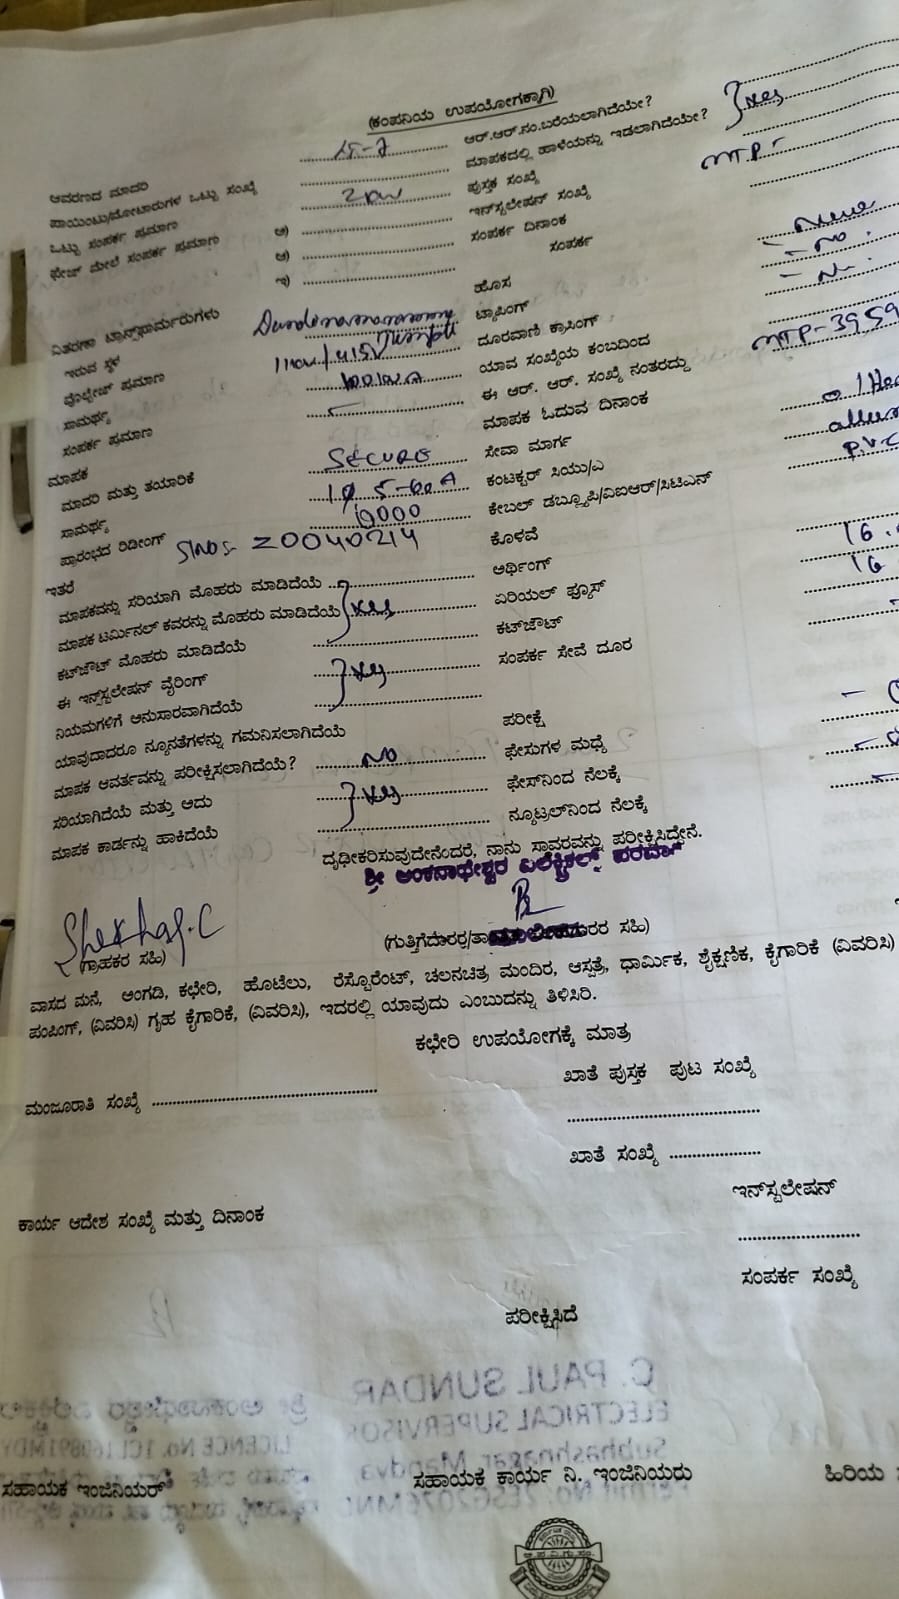 (ಕಂಪನಿಯ ಉಪಯೋಗಕ್ಕಾಗಿ)
ಆವರಣದ ಮಾದರಿ
ಪಾಯಿಂಟು/ಮೋಟಾರುಗಳ ಒಟ್ಟು ಸಂಖ್ಯೆ
ಒಟ್ಟು ಸಂಪರ್ಕ ಪ್ರಮಾಣ
ಫೇಜ್ ಮೇಲೆ ಸಂಪರ್ಕ ಪ್ರಮಾಣ
ಆರ್.ಆರ್.ನಂ.ಬರೆಯಲಾಗಿದೆಯೇ? Yes
ಮಾಪಕದಲ್ಲಿ ಹಾಳೆಯನ್ನು ಇಡಲಾಗಿದೆಯೇ?
ಪುಸ್ತಕ ಸಂಖ್ಯೆ MTP-
ಇನ್‌ಸ್ಟಲೇಷನ್ ಸಂಖ್ಯೆ
ಸಂಪರ್ಕ ದಿನಾಂಕ
ಸಂಪರ್ಕ
ವಿತರಣಾ ಟ್ರಾನ್ಸ್‌ಫಾರ್ಮರುಗಳು
ಇರುವ ಸ್ಥಳ
ವೋಲ್ಟೇಜ್ ಪ್ರಮಾಣ
ಸಾಮರ್ಥ್ಯ
ಸಂಪರ್ಕ ಪ್ರಮಾಣ
ಹೊಸ
ಟ್ಯಾಪಿಂಗ್ - No
ದೂರವಾಣಿ ಕ್ರಾಸಿಂಗ್
ಯಾವ ಸಂಖ್ಯೆಯ ಕಂಬದಿಂದ
ಈ ಆರ್. ಆರ್. ಸಂಖ್ಯೆ ನಂತರದ್ದು MTP-3959
ಮಾಪಕ ಓದುವ ದಿನಾಂಕ
ಮಾಪಕ
ಮಾದರಿ ಮತ್ತು ತಯಾರಿಕೆ SECURE
ಸಾಮರ್ಥ್ಯ 5-60A
ಪ್ರಾರಂಭದ ರಿಡೀಂಗ್
ಸೇವಾ ಮಾರ್ಗ
ಕಂಟಕ್ಟರ್ ಸಿಯು/ಎ
ಕೇಬಲ್ ಡಬ್ಲ್ಯೂಪಿ/ವಿಐಆರ್/ಸಿಟಿಎನ್ P.V.C
ಇತರೆ
ಕೊಳವೆ
ಆರ್ಥಿಂಗ್
ಏರಿಯಲ್ ಫ್ಯೂಸ್
ಕಟ್‌ಔಟ್
ಸಂಪರ್ಕ ಸೇವೆ ದೂರ
ಮಾಪಕವನ್ನು ಸರಿಯಾಗಿ ಮೊಹರು ಮಾಡಿದೆಯೆ
ಮಾಪಕ ಟರ್ಮಿನಲ್ ಕವರನ್ನು ಮೊಹರು ಮಾಡಿದೆಯೆ Yes
ಕಟ್‌ಔಟ್ ಮೊಹರು ಮಾಡಿದೆಯೆ
ಈ ಇನ್ಸ್‌ಟಲೇಷನ್ ವೈರಿಂಗ್
ನಿಯಮಗಳಿಗೆ ಅನುಸಾರವಾಗಿದೆಯೆ Yes
ಯಾವುದಾದರೂ ನ್ಯೂನತೆಗಳನ್ನು ಗಮನಿಸಲಾಗಿದೆಯೆ
ಮಾಪಕ ಆವರ್ತವನ್ನು ಪರೀಕ್ಷಿಸಲಾಗಿದೆಯೆ? NO
ಸರಿಯಾಗಿದೆಯೆ ಮತ್ತು ಅದು Yes
ಮಾಪಕ ಕಾರ್ಡನ್ನು ಹಾಕಿದೆಯೆ
ಪರೀಕ್ಷೆ
ಫೇಸುಗಳ ಮಧ್ಯೆ
ಫೇಸ್‌ನಿಂದ ನೆಲಕ್ಕೆ
ನ್ಯೂಟ್ರಲ್‌ನಿಂದ ನೆಲಕ್ಕೆ
ದೃಢೀಕರಿಸುವುದೇನೆಂದರೆ, ನಾನು ಸ್ಥಾವರವನ್ನು ಪರೀಕ್ಷಿಸಿದ್ದೇನೆ.
ಶ್ರೀ ಅಂಕನಾಥೇಶ್ವರ ಎಲೆಕ್ಟ್ರಿಕಲ್ಸ್ ಪರವಾಗಿ
Shekhar.C
(ಗ್ರಾಹಕರ ಸಹಿ)
ವಾಸದ ಮನೆ, ಅಂಗಡಿ, ಕಛೇರಿ, ಹೊಟೆಲು, ರೆಸ್ಟೊರೆಂಟ್, ಚಲನಚಿತ್ರ ಮಂದಿರ, ಆಸ್ಪತ್ರೆ, ಧಾರ್ಮಿಕ, ಶೈಕ್ಷಣಿಕ, ಕೈಗಾರಿಕೆ (ವಿವರಿಸಿ)
ಪಂಪಿಂಗ್, (ವಿವರಿಸಿ) ಗೃಹ ಕೈಗಾರಿಕೆ, (ವಿವರಿಸಿ), ಇದರಲ್ಲಿ ಯಾವುದು ಎಂಬುದನ್ನು ತಿಳಿಸಿರಿ.
ಕಛೇರಿ ಉಪಯೋಗಕ್ಕೆ ಮಾತ್ರ
ಖಾತೆ ಪುಸ್ತಕ ಪುಟ ಸಂಖ್ಯೆ
ಮಂಜೂರಾತಿ ಸಂಖ್ಯೆ
ಖಾತೆ ಸಂಖ್ಯೆ
ಇನ್‌ಸ್ಟಲೇಷನ್
ಕಾರ್ಯ ಆದೇಶ ಸಂಖ್ಯೆ ಮತ್ತು ದಿನಾಂಕ
ಸಂಪರ್ಕ ಸಂಖ್ಯೆ
ಪರೀಕ್ಷಿಸಿದೆ
ಸಹಾಯಕ ಇಂಜಿನಿಯರ್
ಸಹಾಯಕ ಕಾರ್ಯ ನಿ. ಇಂಜಿನಿಯರು
ಹಿರಿಯ